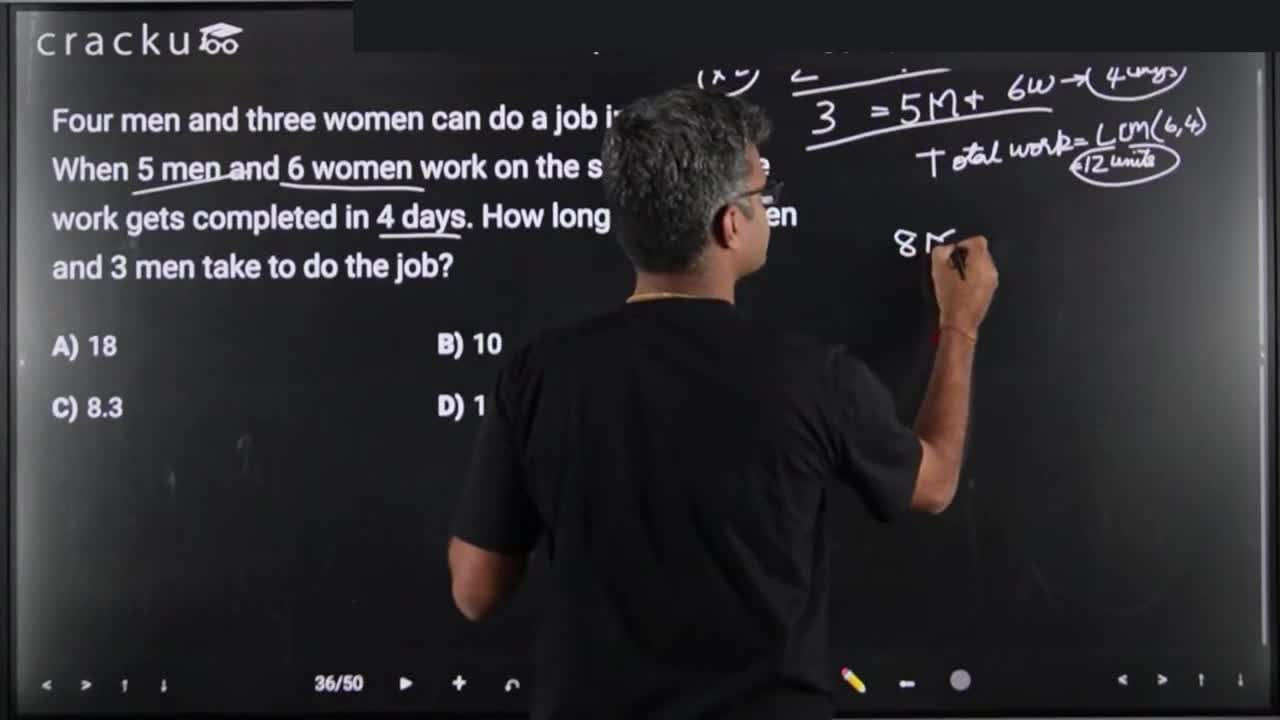 cracku
3 = 5M + 6W → 4 days
Total work = LCM(6,4)
= 12 units
8M
Four men and three women can do a job i
When 5 men and 6 women work on the s
work gets completed in 4 days. How long en
and 3 men take to do the job?
A) 18
B) 10
C) 8.3
D) 1
36/50